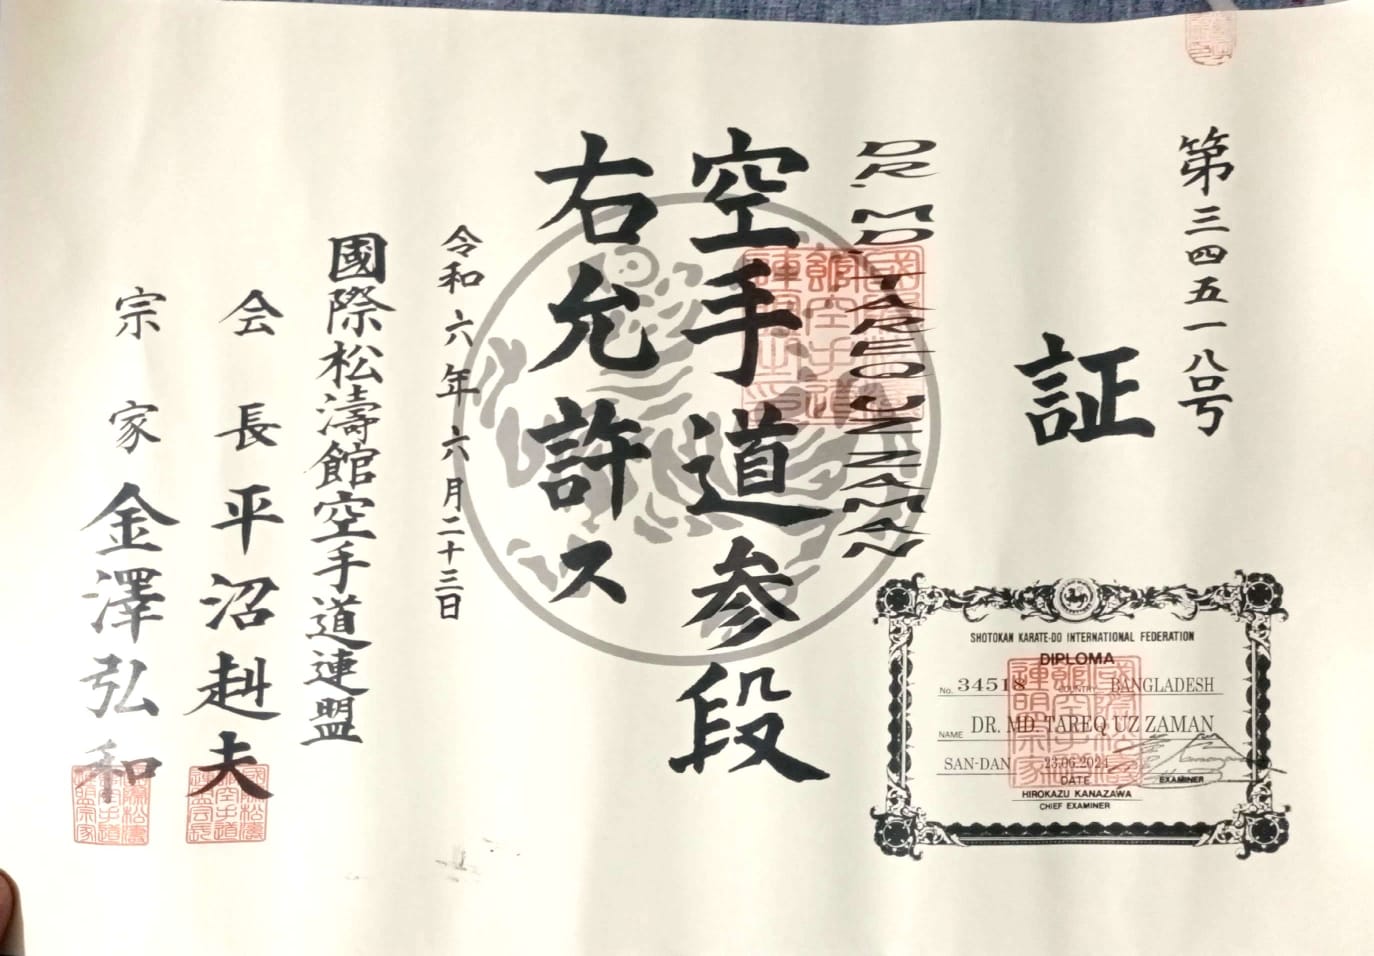 第三四五一八号
証
DR. MD. TAREQ UZ ZAMAN
空手道参段
右允許ス
令和六年六月二十三日
國際松濤館空手道連盟
会長平沼赳夫
宗家金澤弘和
SHOTOKAN KARATE-DO INTERNATIONAL FEDERATION
DIPLOMA
No. 34518 COUNTRY BANGLADESH
NAME DR. MD. TAREQ UZ ZAMAN
SAN-DAN 23.06.2024
DATE EXAMINER
HIROKAZU KANAZAWA
CHIEF EXAMINER